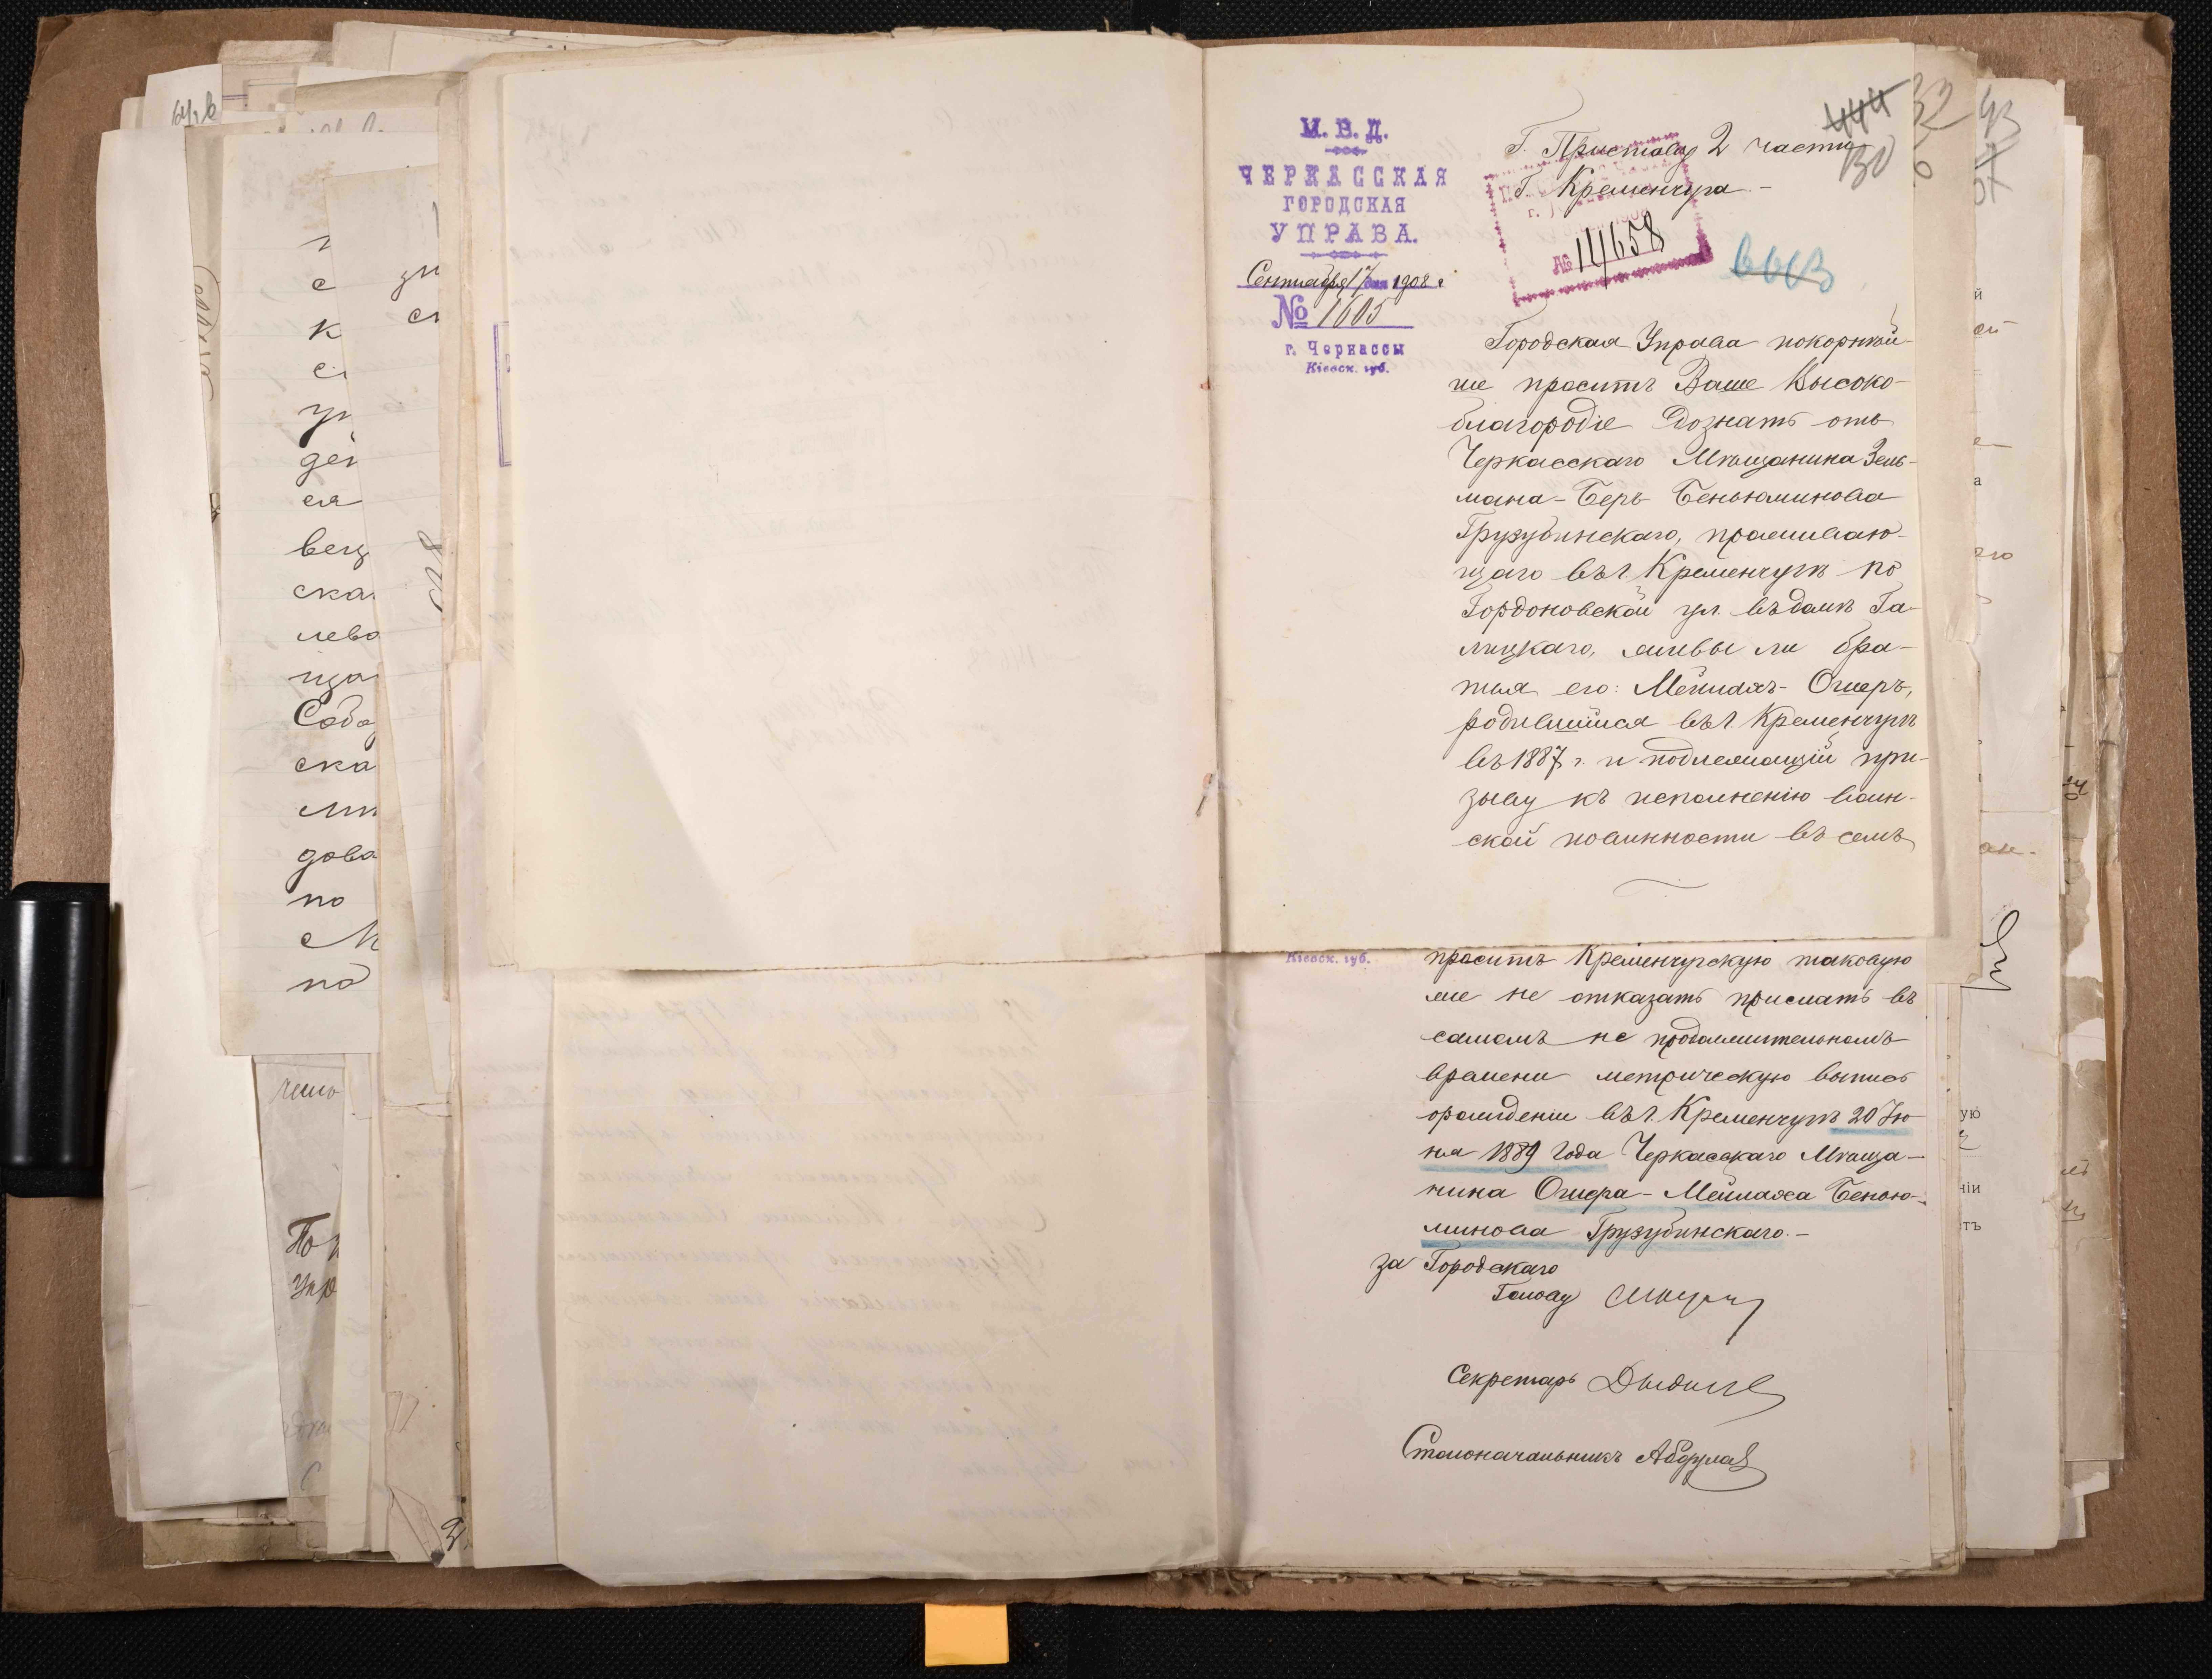 М. В. Д.
ЧЕРКАССКАЯ
ГОРОДСКАЯ
УПРАВА.
Сентября 17 дня 1908 г.
№ 1605
г. Черкассы
Кіевск. губ.
Г. Приставу 2 части
Г. Кременчуга
444
130
№ 14658
Городская Управа покорнѣй-
ше проситъ Ваше Высоко-
благородіе дознать отъ
Черкасскаго Мѣщанина Зель-
мана-Беръ Беньюминова
Грузубинскаго, проживаю-
щаго въ г. Кременчугѣ по
Гордоновской ул. въ домѣ Га-
лицкаго, живы ли бра-
тья его: Меймахъ-Ошеръ,
родившійся въ г. Кременчугѣ
въ 1887 г. и подлежащій при-
зыву къ исполненію воин-
ской повинности въ семъ
Кіевск. губ.
проситъ Кременчугскую таковую
же не отказать прислать въ
самомъ не продолжительномъ
времени метрическую выпись
о рожденіи въ г. Кременчугѣ 20 Ію-
ня 1889 года Черкасскаго Мѣща-
нина Ошера-Меймаха Бенью-
минова Грузубинскаго.-
за Городскаго
Голову
Секретарь
Столоначальникъ
с
к
дей
вещ
ска
лево
ща
ска
дова
по
по